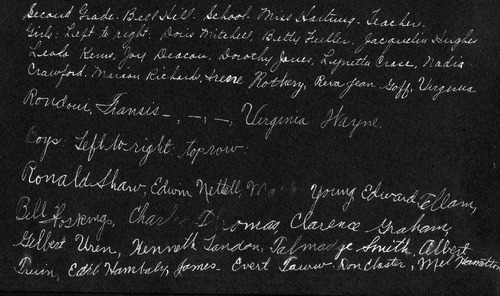 Second Grade. Bell Hill. School. Miss Hartung. Teacher.
Girls: Left to right: Doris Mitchell, Betty Fuller, Jacquelin Hughes
Leola Kims, Joy Deacon, Dorothy Jones, Lynetta Case, Nadia
Crawford, Marion Richards, Irene Rothery, Reva Jean Goff, Virginia
Rondoni, Fransis -, -, -, Virginia Wayne.
Boys: Left to right: top row:
Ronald Shaw, Edwin Nettell, Young Edward Ellam,
Bill Hoskings, Charles Thomas, Clarence Graham,
Gilbert Uren, Kenneth Landon, Talmadge Smith, Albert
Edd Hambaly, James - Evert Don Chester, Mel Hamilton